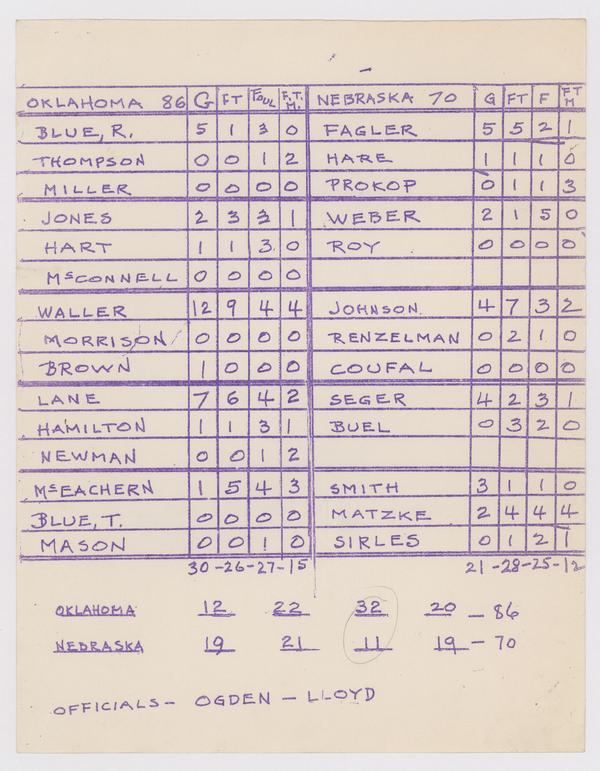 OKLAHOMA 86 G FT FOUL F.T. M. NEBRASKA 70 G FT F FT M
BLUE, R. 5 1 3 0 FAGLER 5 5 2 1
THOMPSON 0 0 1 2 HARE 1 1 1 0
MILLER 0 0 0 0 PROKOP 0 1 1 3
JONES 2 3 3 1 WEBER 2 1 5 0
HART 1 1 3 0 ROY 0 0 0 0
McCONNELL 0 0 0 0
WALLER 12 9 4 4 JOHNSON 4 7 3 2
MORRISON 0 0 0 0 RENZELMAN 0 2 1 0
BROWN 1 0 0 0 COUFAL 0 0 0 0
LANE 7 6 4 2 SEGER 4 2 3 1
HAMILTON 1 1 3 1 BUEL 0 3 2 0
NEWMAN 0 0 1 2
McEACHERN 1 5 4 3 SMITH 3 1 1 0
BLUE, T. 0 0 0 0 MATZKE 2 4 4 4
MASON 0 0 1 0 SIRLES 0 1 2 1
30-26-27-15 21-28-25-12
OKLAHOMA 12 22 32 20 - 86
NEBRASKA 19 21 11 19 - 70
OFFICIALS - OGDEN - LLOYD